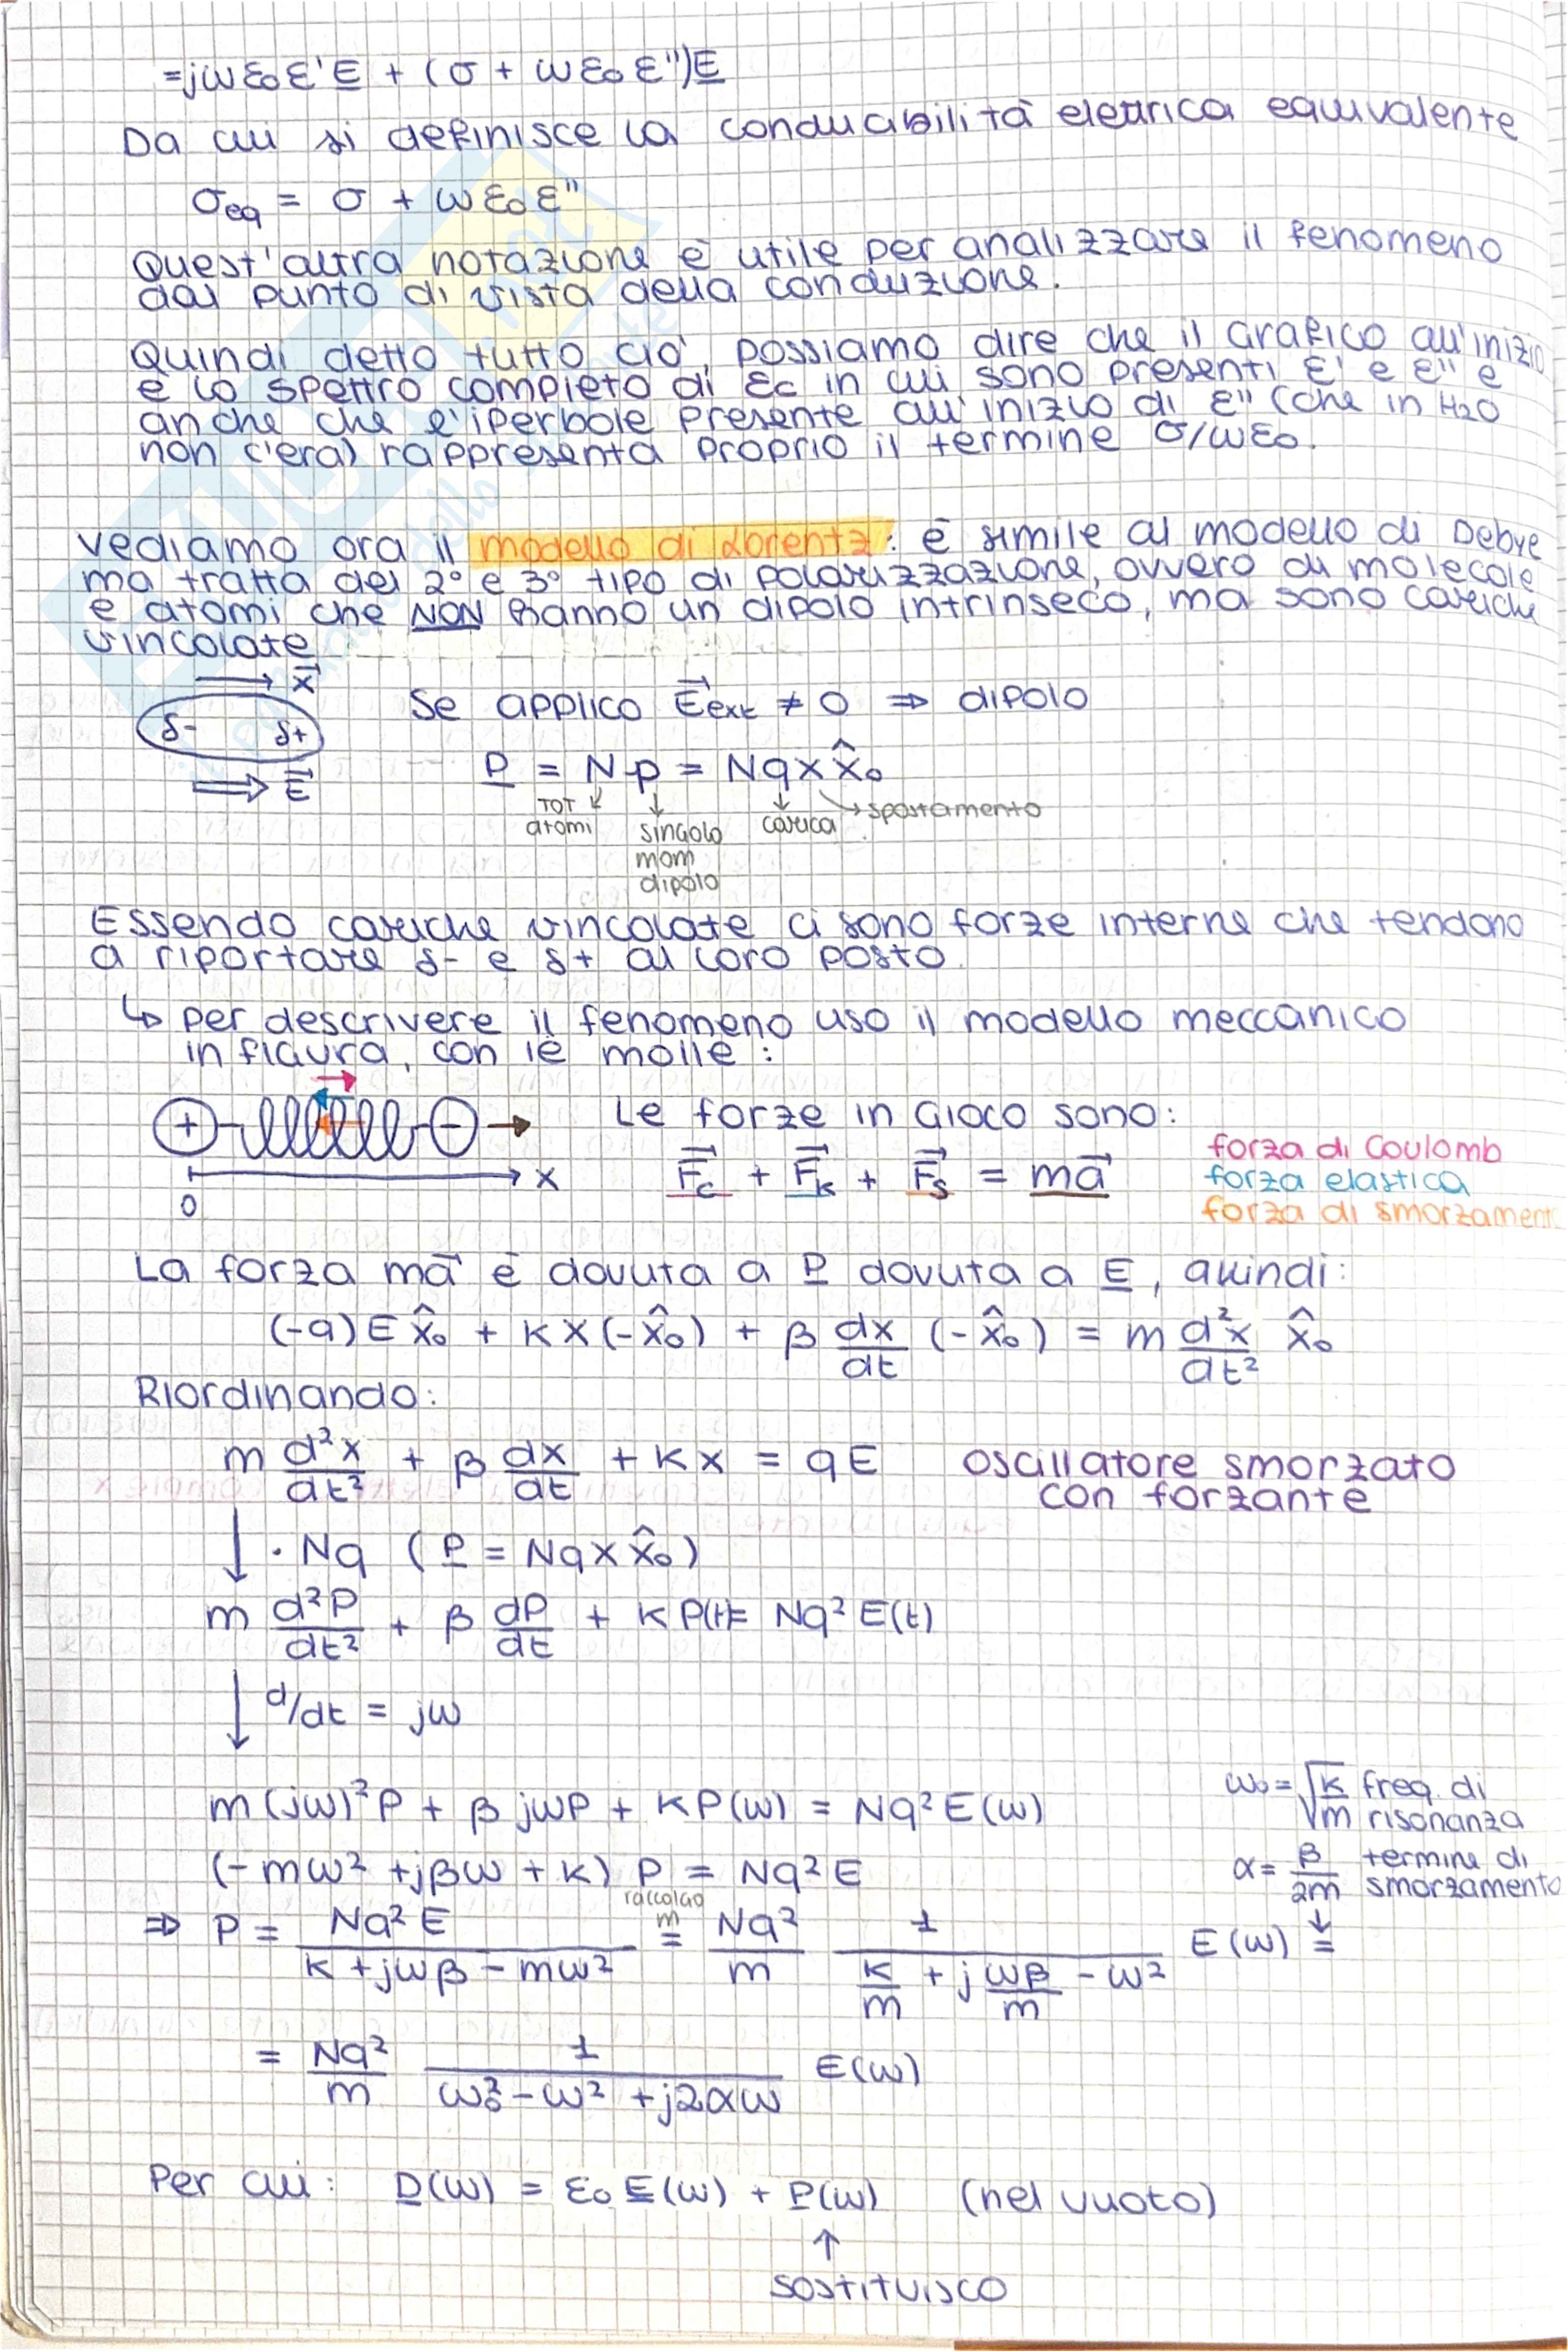 =jωε₀ε'E + (σ + ωε₀ε'')E
Da cui si definisce la conducibilità elettrica equivalente
σeq = σ + ωε₀ε''
Quest'altra notazione è utile per analizzare il fenomeno
dal punto di vista della conduzione.
Quindi detto tutto ciò, possiamo dire che il grafico all'inizio
è lo spettro completo di εc in cui sono presenti ε' e ε'' e
anche che l'iperbole presente all'inizio di ε'' (che in H2O
non c'era) rappresenta proprio il termine σ/ωε₀.
Vediamo ora il modello di Lorentz: è simile al modello di Debye
ma tratta del 2° e 3° tipo di polarizzazione, ovvero di molecole
e atomi che NON hanno un dipolo intrinseco, ma sono cariche
vincolate
x⃗
δ- δ+
E⃗
Se applico E⃗ext ≠ 0 ⇒ dipolo
P = Np = Nqx x̂₀
TOT atomi
singolo mom dipolo
carica
spostamento
Essendo cariche vincolate ci sono forze interne che tendono
a riportare δ- e δ+ al loro posto.
↳ per descrivere il fenomeno uso il modello meccanico
in figura, con le molle:
+ -
0 x
Le forze in gioco sono:
F⃗c + F⃗k + F⃗s = ma⃗
forza di Coulomb
forza elastica
forza di smorzament
La forza ma⃗ è dovuta a P dovuta a E, quindi:
(-q)E x̂₀ + Kx(-x̂₀) + β dx/dt (-x̂₀) = m d²x/dt² x̂₀
Riordinando:
m d²x/dt² + β dx/dt + Kx = qE oscillatore smorzato
con forzante
↓ · Nq (P = Nqx x̂₀)
m d²P/dt² + β dP/dt + K P(t)= Nq² E(t)
↓ d/dt = jω
m(jω)²P + β jωP + KP(ω) = Nq²E(ω)
ω₀ = √K/m freq. di
risonanza
(-mω² + jβω + K) P = Nq²E
α = β/2m termine di
smorzamento
⇒ P = Nq²E / (K + jωβ - mω²) = Nq²/m 1/(K/m + j ωβ/m - ω²) E(ω) =
raccolgo m
↓
= Nq²/m 1/(ω₀² - ω² + j2αω) E(ω)
Per cui: D(ω) = ε₀E(ω) + P(ω) (nel vuoto)
↑
sostituisco